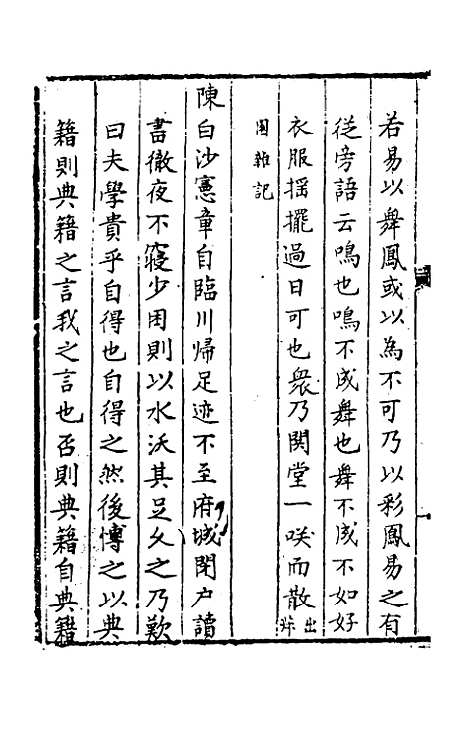 若易以舞鳳或以為不可乃以彩鳳易之有
従旁語云鳴也鳴不成舞也舞不成不如好
衣服揺擺過日可也衆乃関堂一咲而散出
園雜記
陳白沙憲章自臨川帰足迹不至府城閉户讀
書徹夜不寝少困則以水沃其足久之乃歎
曰夫學貴乎自得也自得之然後博之以典
籍則典籍之言我之言也否則典籍自典籍